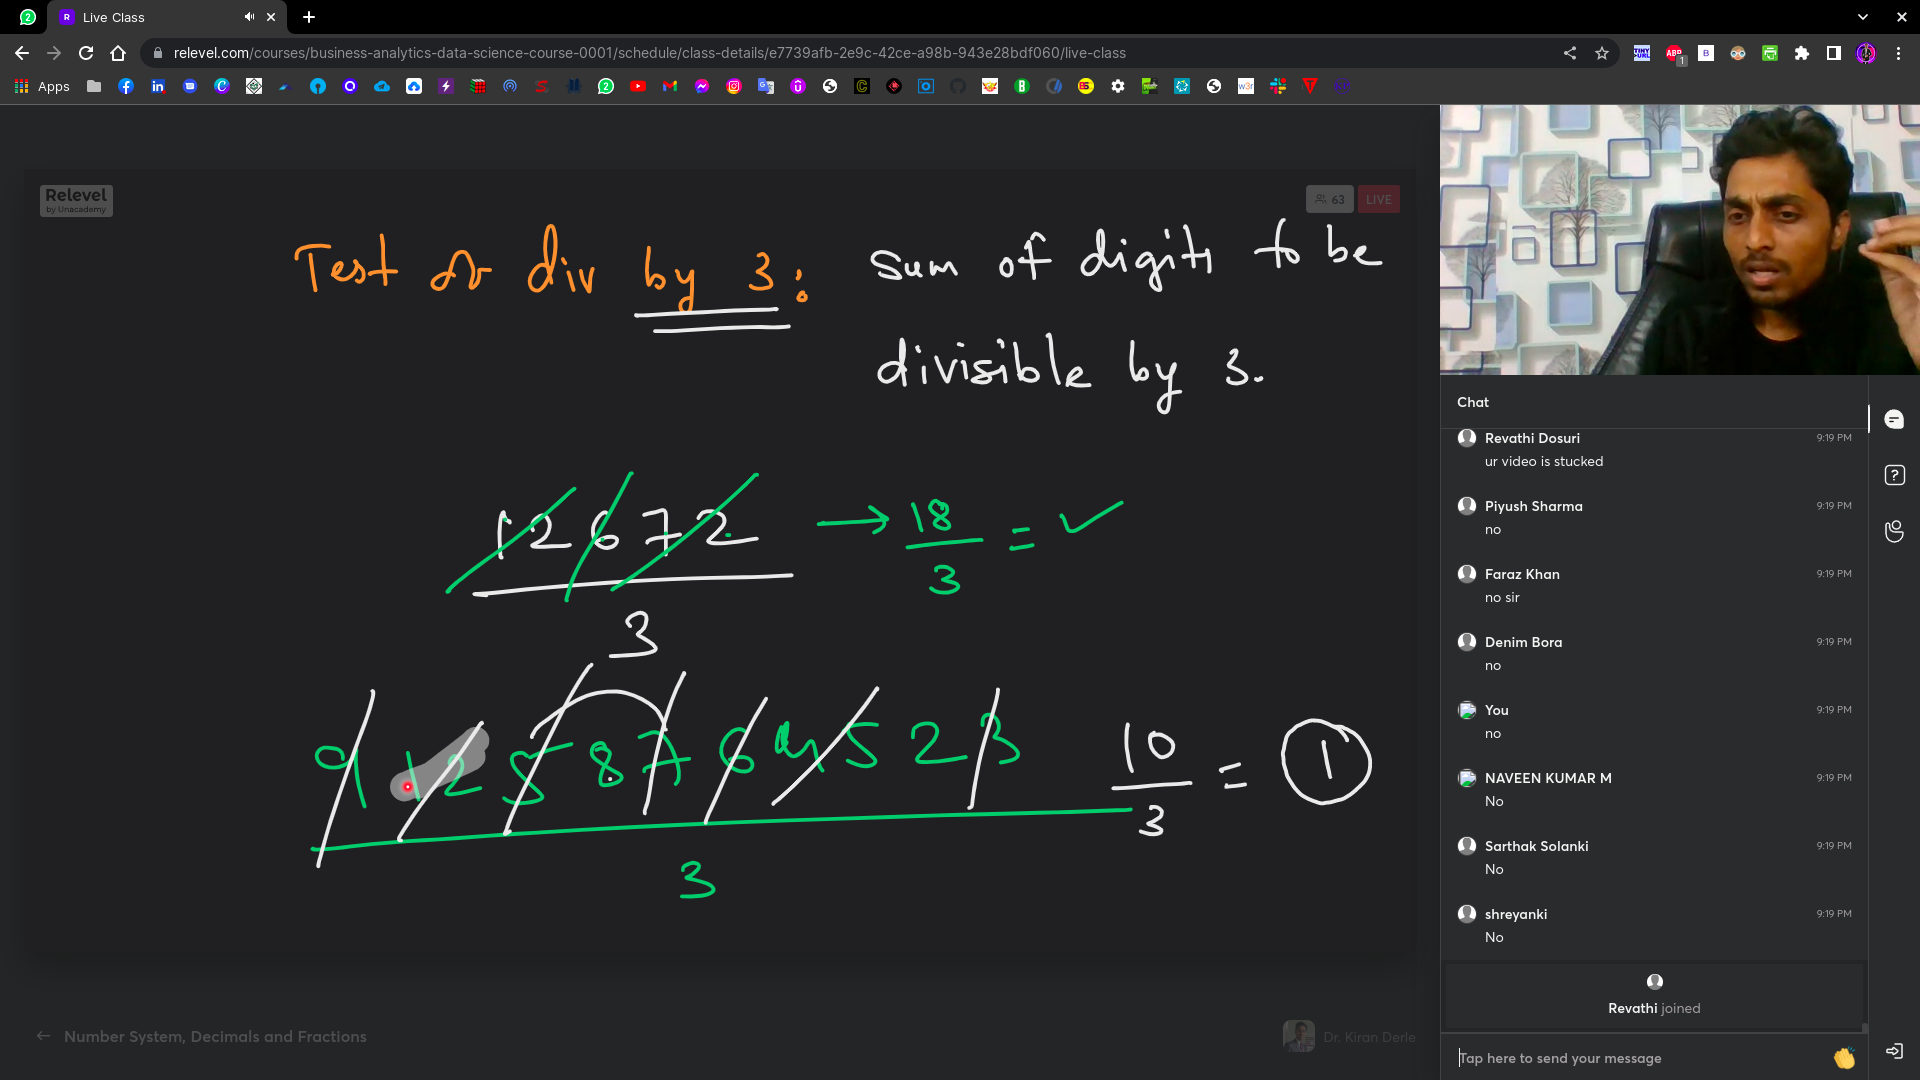 Live Class
relevel.com/courses/business-analytics-data-science-course-0001/schedule/class-details/e7739afb-2e9c-42ce-a98b-943e28bdf060/live-class
Apps
Relevel
by Unacademy
63 LIVE
Test for div by 3: sum of digits to be
divisible by 3.
12672 → 18/3 = ✓
3
9125876
4523
10/3 = 1
3
Number System, Decimals and Fractions
Dr. Kiran Derle
Chat
Revathi Dosuri 9:19 PM
ur video is stucked
Piyush Sharma 9:19 PM
no
Faraz Khan 9:19 PM
no sir
Denim Bora 9:19 PM
no
You 9:19 PM
no
NAVEEN KUMAR M 9:19 PM
No
Sarthak Solanki 9:19 PM
No
shreyanki 9:19 PM
No
Revathi joined
Tap here to send your message